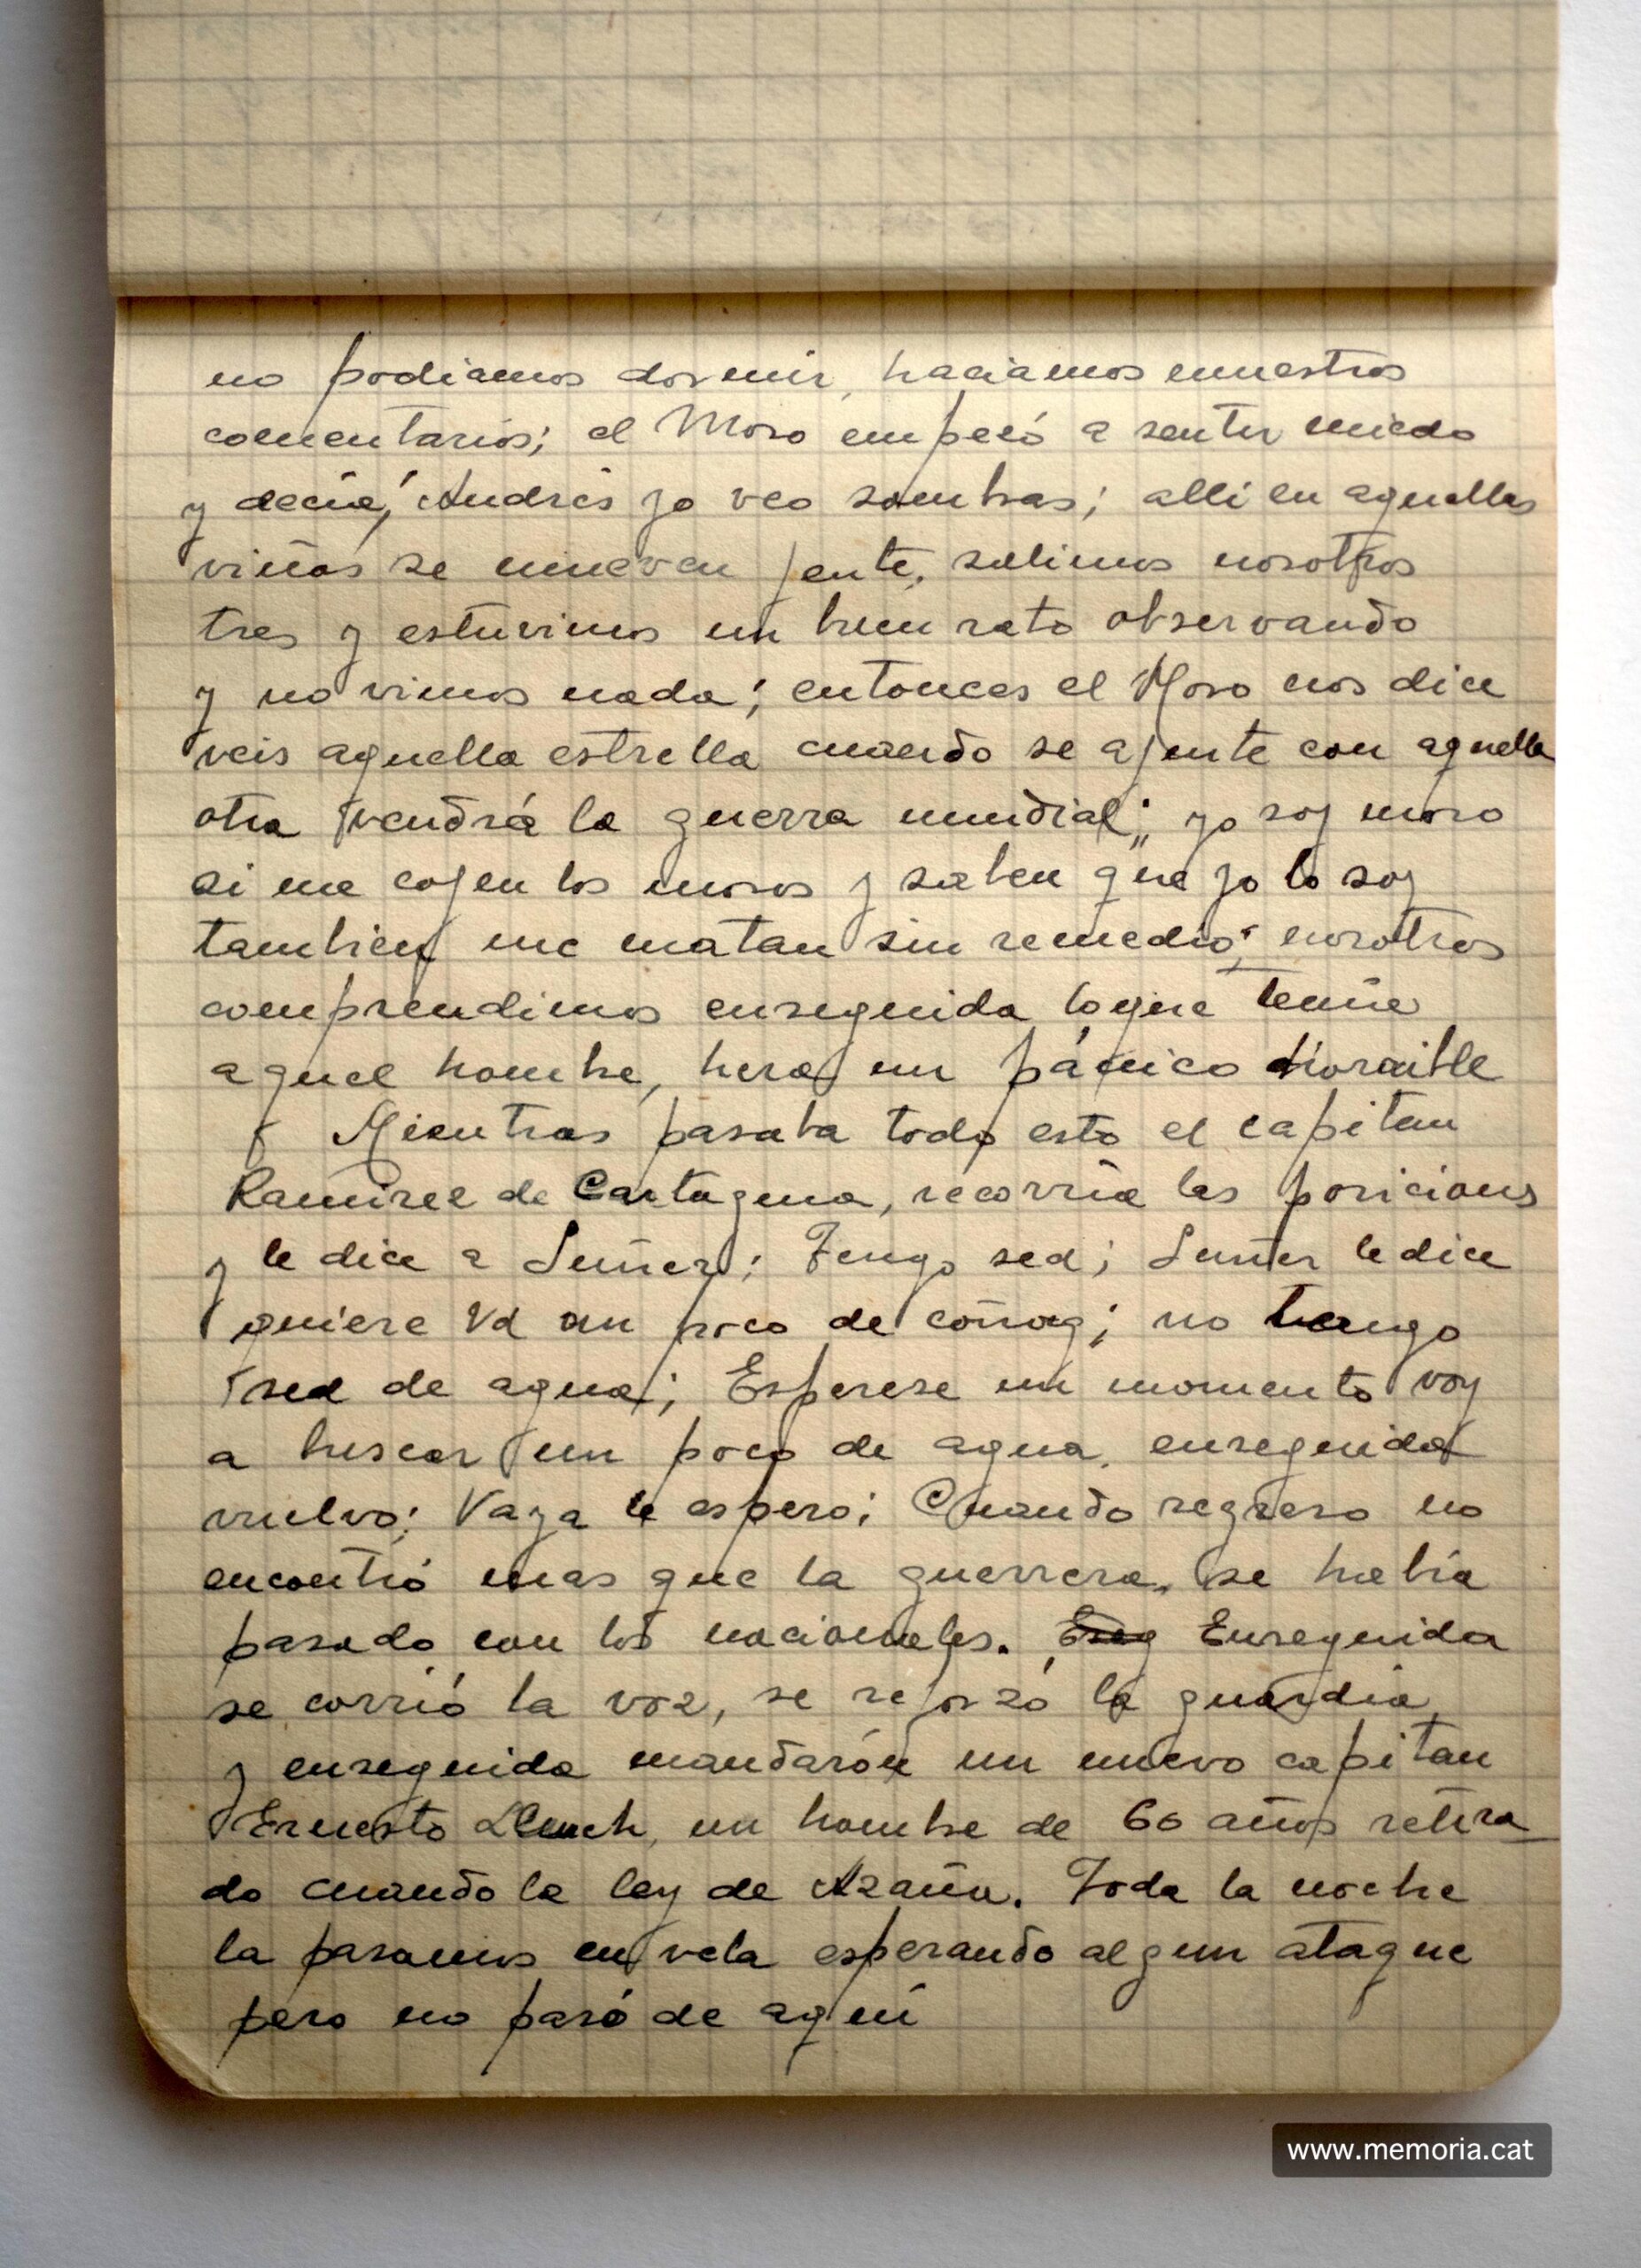 no podiamos dormir, haciamos nuestros
comentarios; el Moro empezó a sentir miedo
y decia, Andrés yo veo sombras; alli en aquellas
viñas se mueven jente, salimos nosotros
tres y estuvimos un buen rato observando
y no vimos nada; entonces el Moro nos dice
veis aquella estrella cuando se ajunte con aquella
otra vendrá la guerra mundial; yo soy moro
si me cojen los moros y saben que yo lo soy
tambien me matan sin remedio; nosotros
comprendimos enseguida loque tenia
aquel hombre, hera un pánico
Mientras pasaba todo esto el capitan
Ramirez de Cartagena, recorria las posiciones
y le dice a Suñer; Tengo sed; Suñer le dice
quiere Vd un poco de coñag; no tengo
sed de agua; Esperese un momento voy
a buscar un poco de agua, enseguida
vuelvo; Vaya le espero; Cuando regreso no
encontró mas que la guerrera, se habia
pasado con los nacionales. Enseguida
se corrió la voz, se reforzó la guardia
y enseguida mandarón un nuevo capitan
Ernesto Lluch, un hombre de 60 años retira
do cuando la ley de Azaña. Toda la noche
la pasamos en vela esperando algun ataque
pero no pasó de aqui
www.memoria.cat